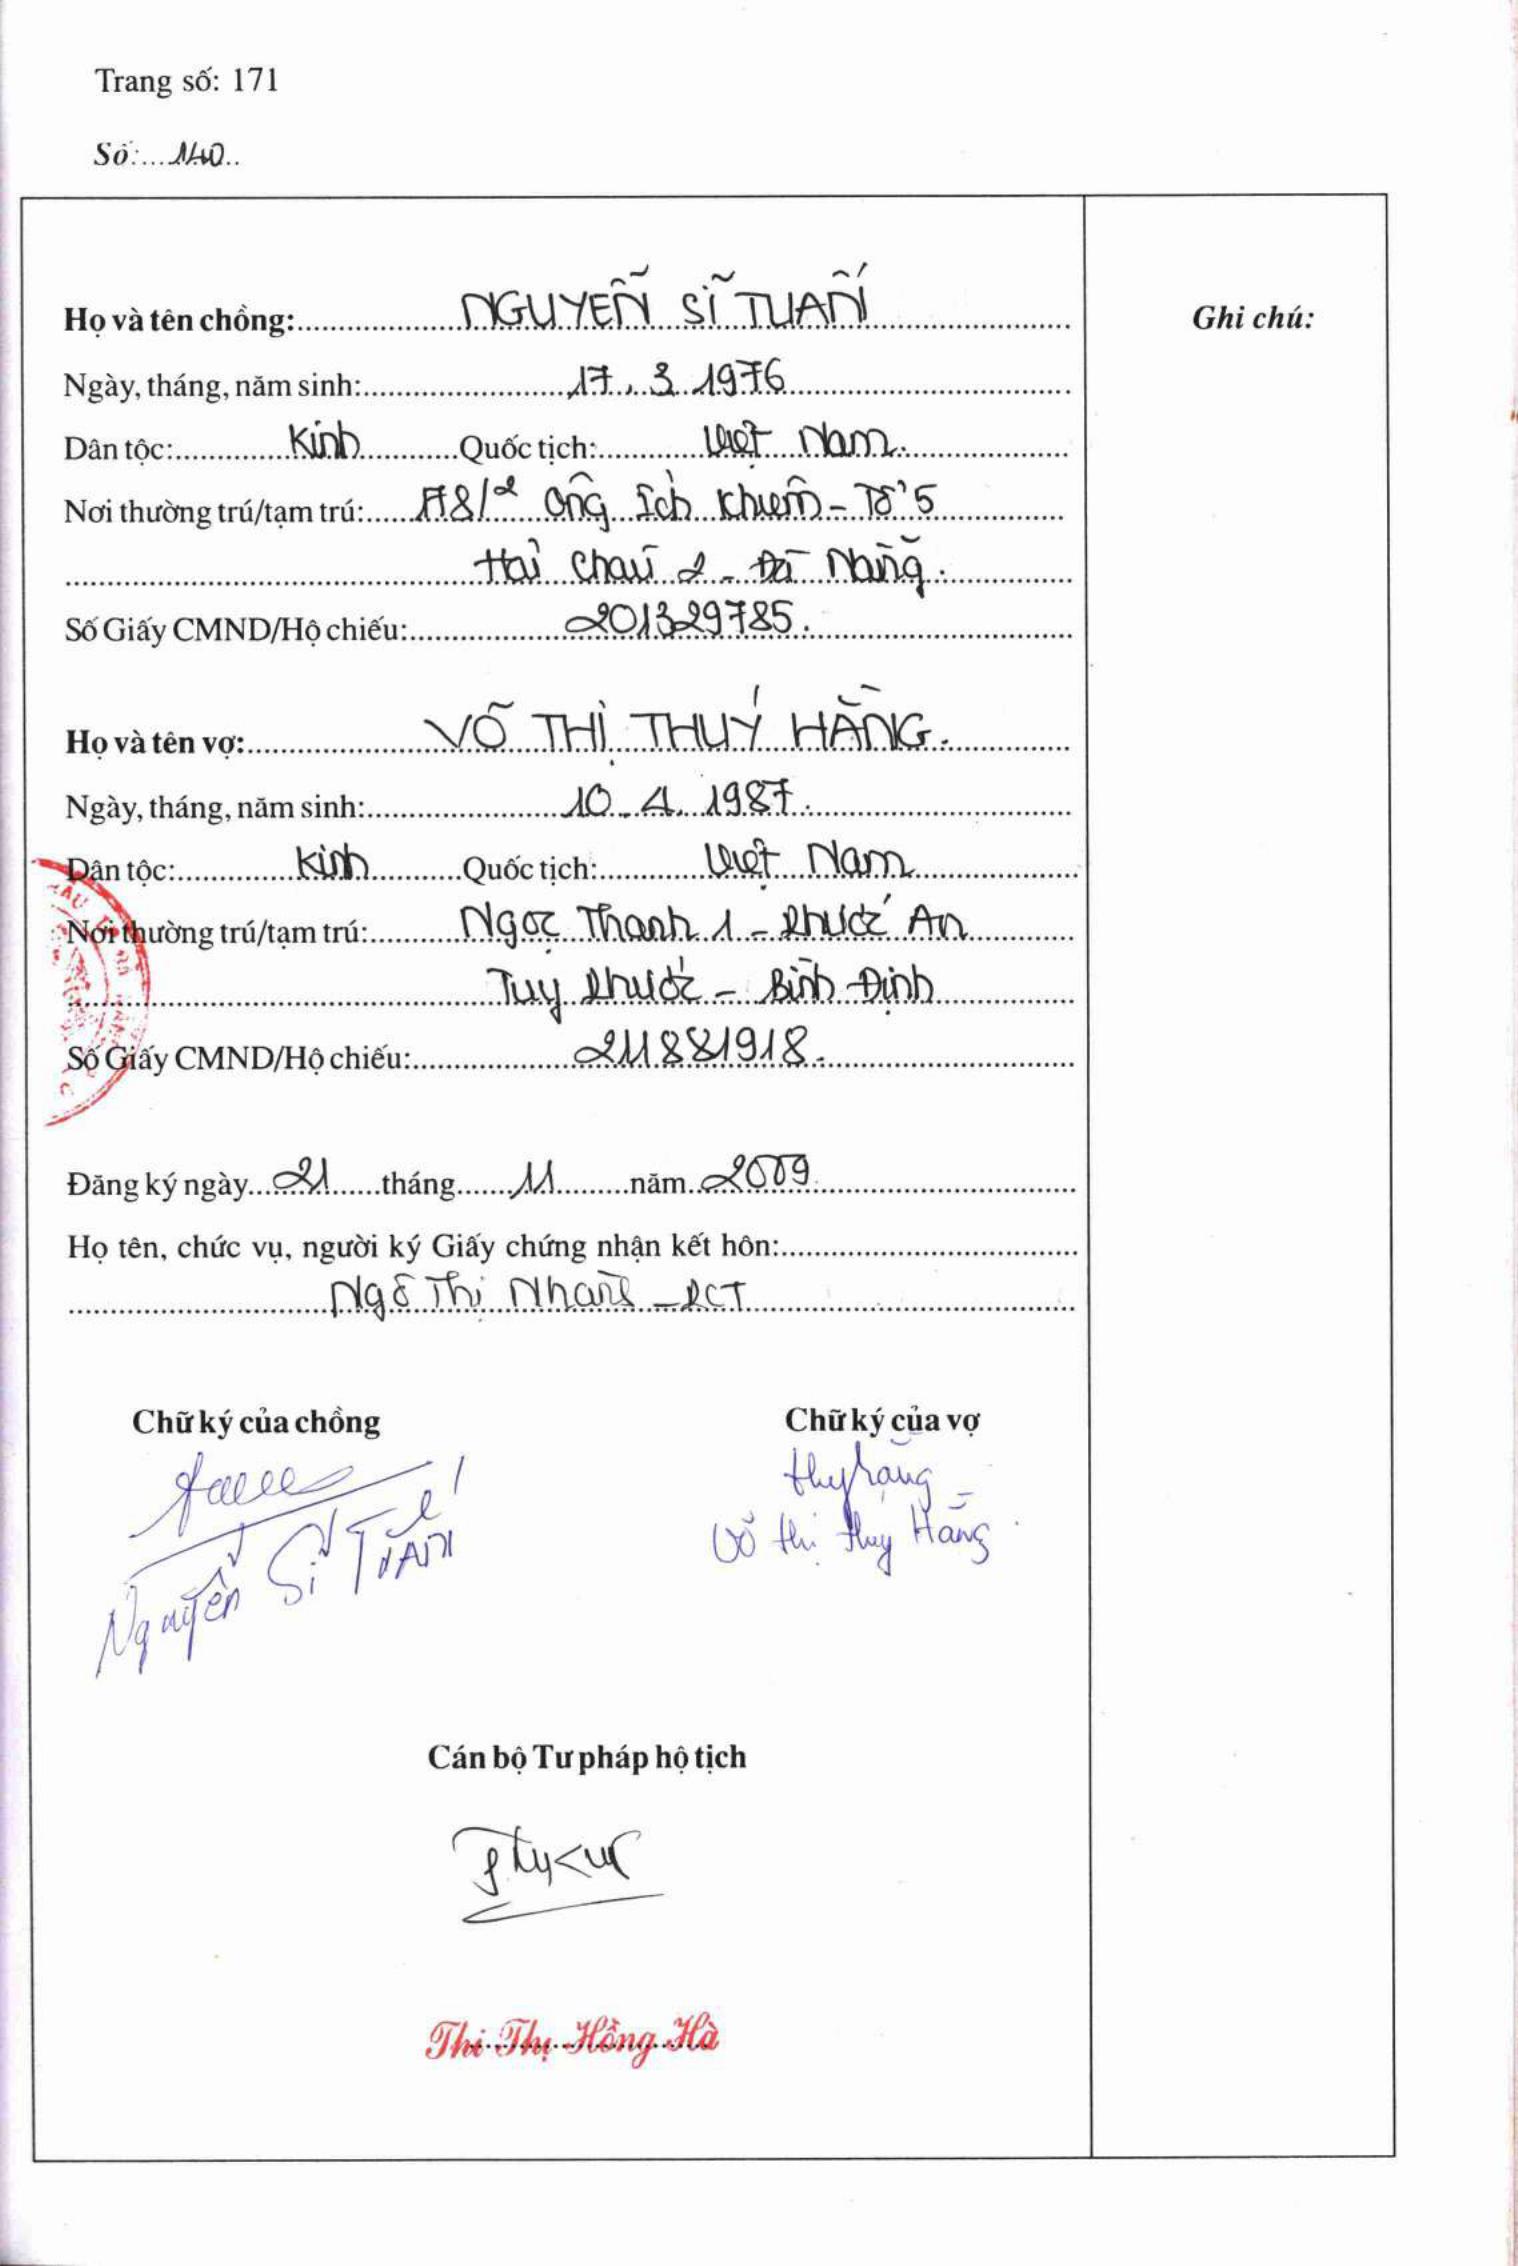 Trang số: 171
Số:...140..
Họ và tên chồng: NGUYỄN SĨ TUẤN
Ghi chú:
Ngày, tháng, năm sinh: 17. 3. 1976
Dân tộc: Kinh Quốc tịch: Việt Nam.
Nơi thường trú/tạm trú: H8/2 Ông Ích Khiêm - Tổ 5
Hải Châu 2 - Đà Nẵng.
Số Giấy CMND/Hộ chiếu: 201329785.
Họ và tên vợ: VÕ THỊ THUÝ HẰNG.
Ngày, tháng, năm sinh: 10. 4. 1987.
Dân tộc: Kinh Quốc tịch: Việt Nam
Nơi thường trú/tạm trú: Ngọc Thạnh 1 - Phước An
Tuy Phước - Bình Định
Số Giấy CMND/Hộ chiếu: 211881918.
Đăng ký ngày 21 tháng 11 năm 2009
Họ tên, chức vụ, người ký Giấy chứng nhận kết hôn:
Ngô Thị Nhạn - PCT
Chữ ký của chồng
Chữ ký của vợ
Nguyễn Sĩ Tuấn
Võ Thị Thúy Hằng.
Cán bộ Tư pháp hộ tịch
Thi Thị Hồng Hà